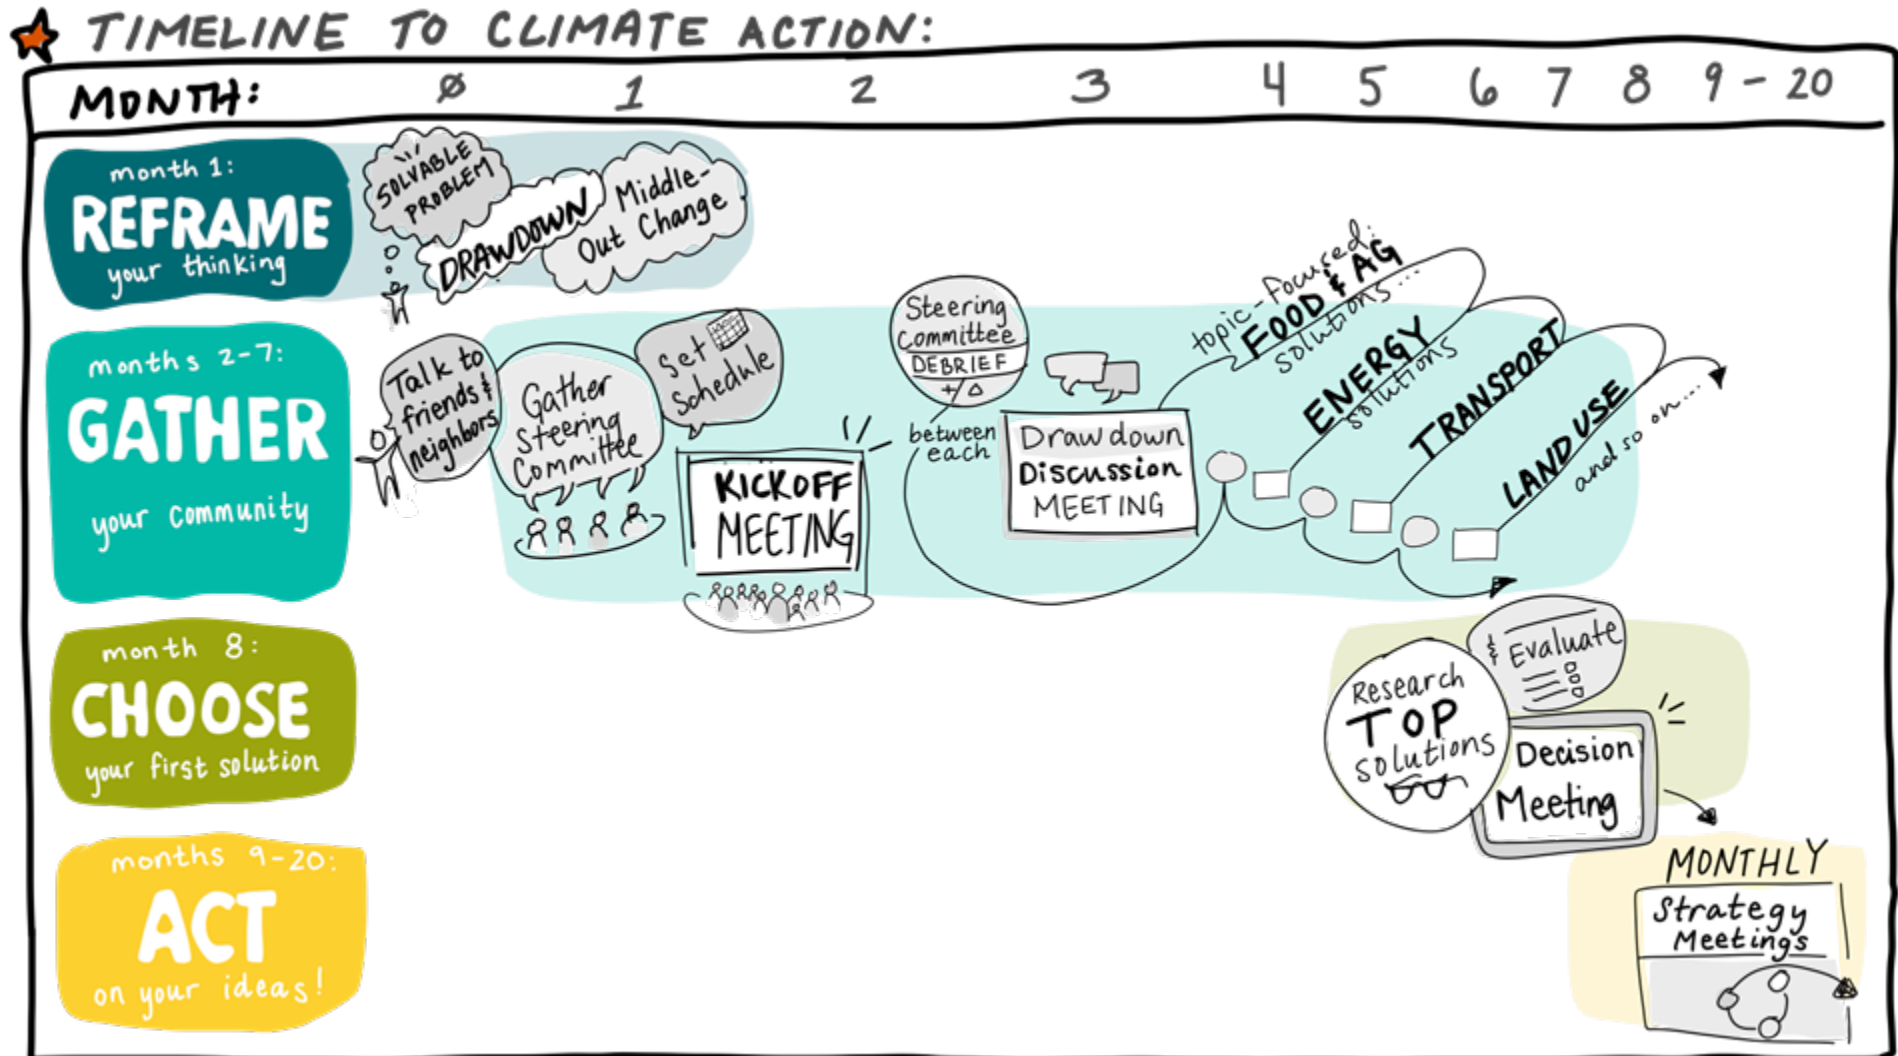 TIMELINE TO CLIMATE ACTION:
MONTH: Ø 1 2 3 4 5 6 7 8 9 - 20
month 1:
REFRAME
your thinking
SOLVABLE
PROBLEM
DRAWDOWN
Middle-
Out Change
months 2-7:
GATHER
your community
Talk to
friends &
neighbors
Gather
Steering
Committee
Set
Schedule
KICKOFF
MEETING
Steering
Committee
DEBRIEF
+ Δ
between
each
Drawdown
Discussion
MEETING
topic-focused:
FOOD & AG
solutions...
ENERGY
solutions
TRANSPORT
LAND USE
and so on...
month 8:
CHOOSE
your first solution
Research
TOP
solutions
& Evaluate
Decision
Meeting
months 9-20:
ACT
on your ideas!
MONTHLY
Strategy
Meetings